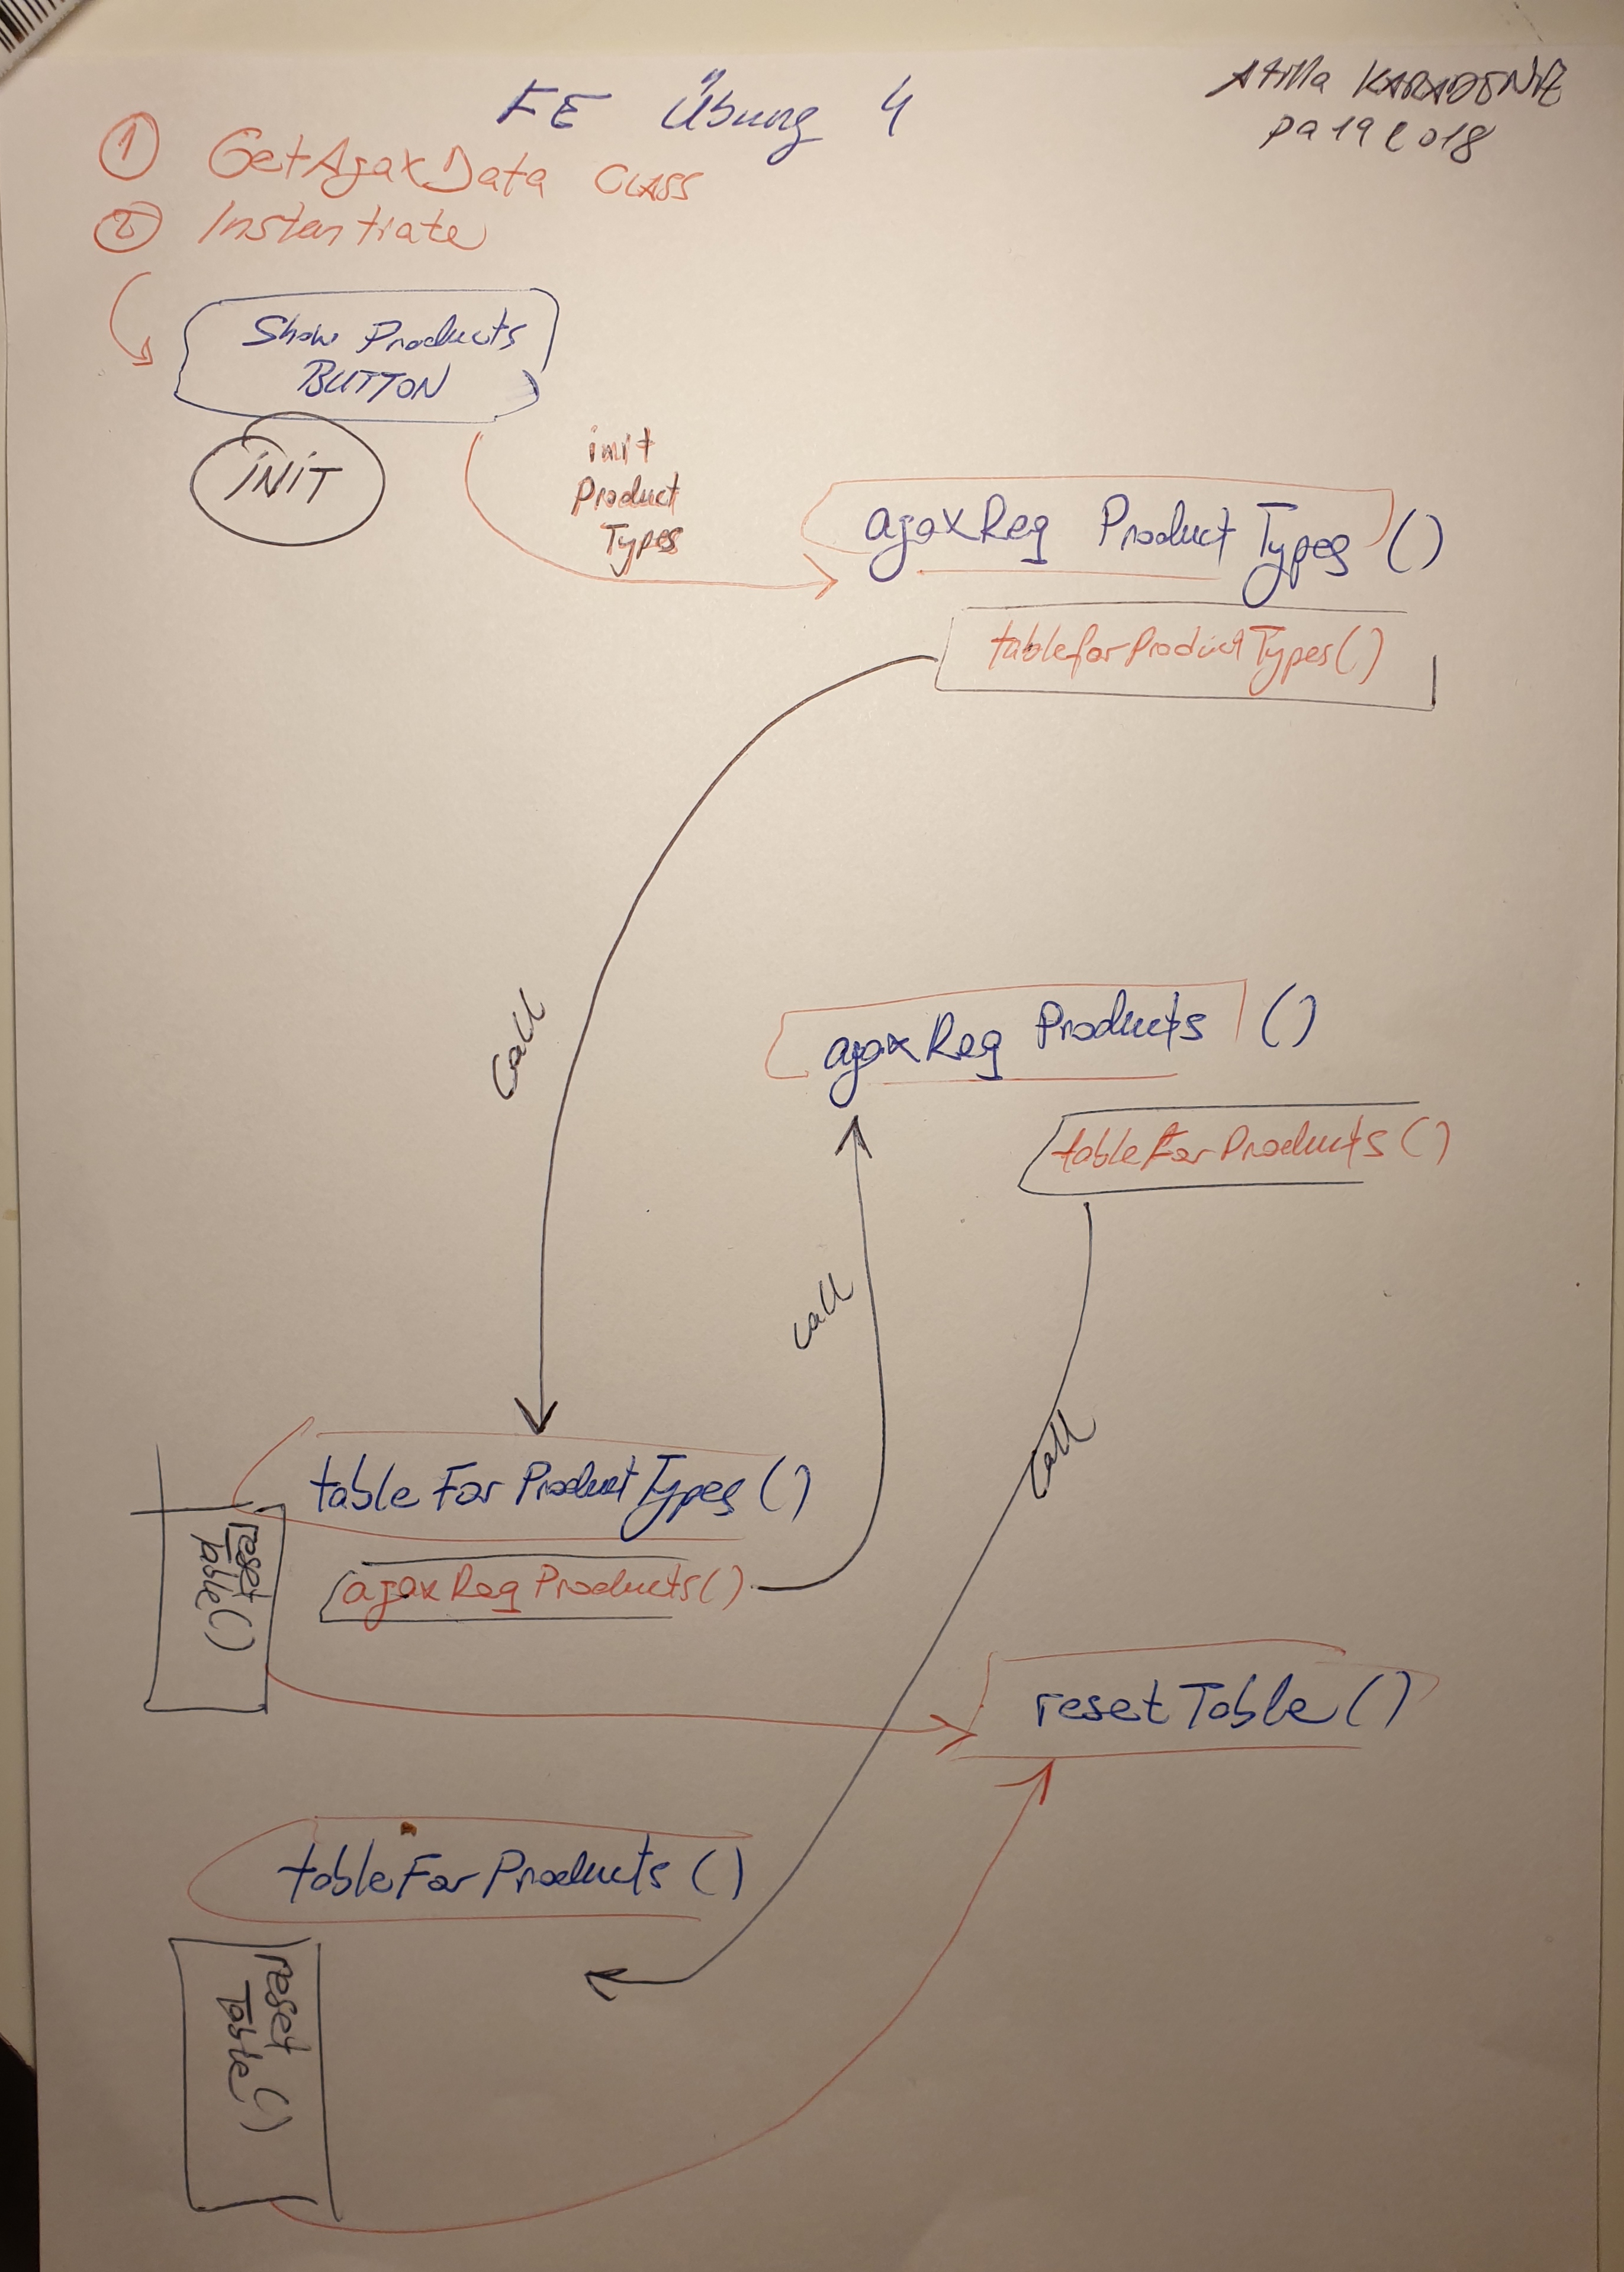 FE Übung 4
Atilla KARADENIZ
pa192018
① GetAjaxData CLASS
② Instantiate
Show Products
BUTTON
INIT
init
Product
Types
ajaxReq Product Types ()
tableforProductTypes()
Call
ajaxReq Products ()
tableForProducts ()
call
call
tableForProductTypes ()
reset
Table()
ajaxReqProducts()
resetTable()
tableForProducts ()
reset
Table()